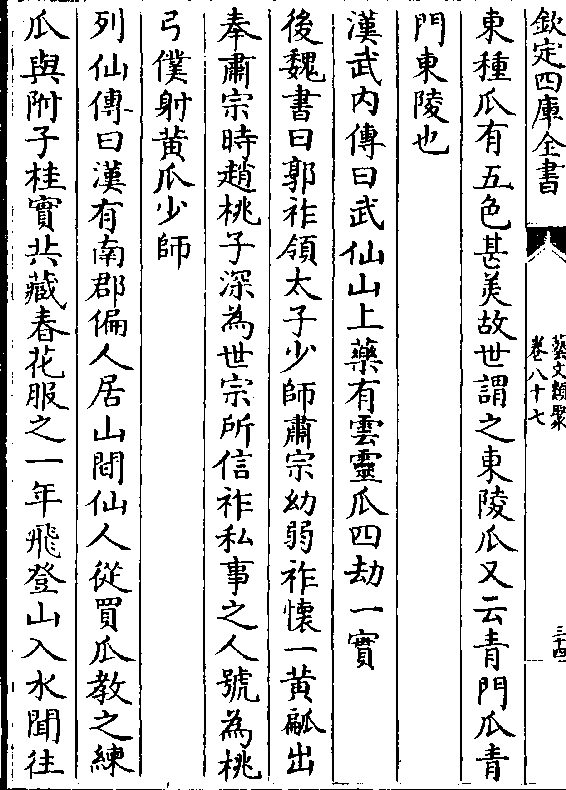 欽定四庫全書
藝文類聚
卷八十七
三十四
東種瓜有五色甚美故世謂之東陵瓜又云青門瓜青
門東陵也
漢武内傳曰武仙山上藥有雲靈瓜四劫一實
後魏書曰郭祚領太子少師肅宗幼弱祚懷一黄㼐出
奉肅宗時趙桃子深為世宗所信祚私事之人號為桃
弓僕射黄瓜少師
列仙傳曰漢有南郡偏人居山間仙人從買瓜教之練
瓜與附子桂實共藏春花服之一年飛登山入水聞往